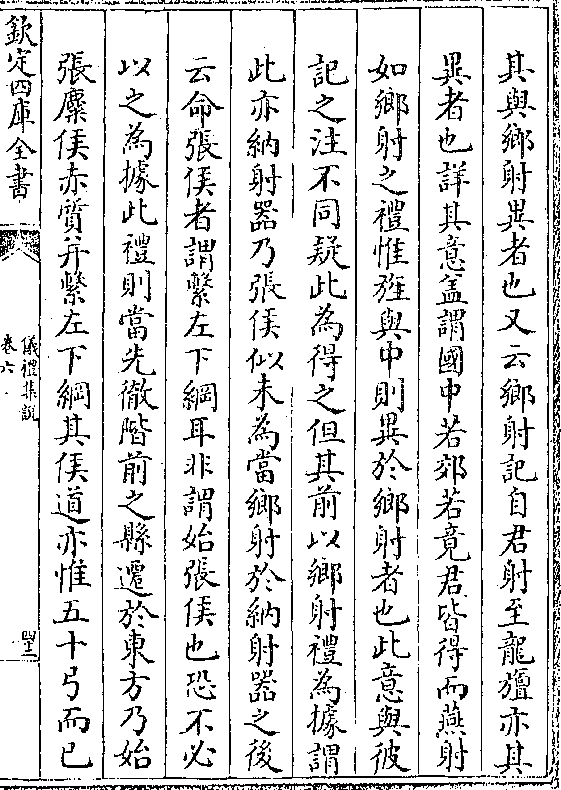 其與鄉射異者也又云鄉射記自君射至龍旜亦其
異者也詳其意盖謂國中若郊若竟君皆得而燕射
如鄉射之禮惟旌與中則異於鄉射者也此意與彼
記之注不同疑此為得之但其前以鄉射禮為據謂
此亦納射器乃張侯似未為當鄉射於納射器之後
云命張侯者謂繫左下綱耳非謂始張侯也恐不必
以之為據此禮則當先徹階前之縣遷於東方乃始
張麋侯赤質并繫左下綱其侯道亦惟五十弓而已
欽定四庫全書
儀禮集說
卷六